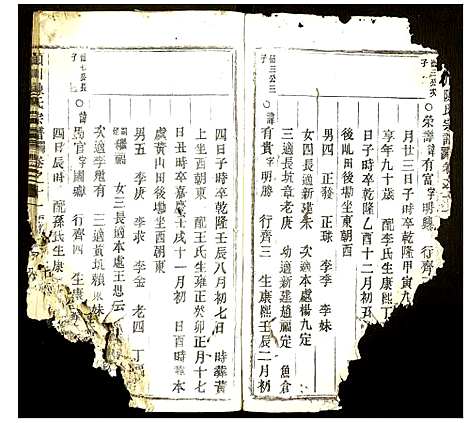 陳氏宗譜
榮譜 諱有富 字明 行齊
月廿三日子時卒乾隆甲寅九
享年九十歲 配李氏生康熙丁
日子時卒乾隆乙酉十二月初五
後畈田後塝坐東朝西
男四 正發 正球 李 李妹
女四長適新港朱 次適本處楊九定
三適長坑章老庚 幼適新建趙福定 魚倉
諱有貴 字明勝 行齊三 生康熙壬辰二月初
四日子時卒乾隆壬辰八月初七日 時葬黃
上坐西朝東 配王氏生雍正癸卯正月十七
日丑時卒嘉慶壬戌十一月初 日酉時葬本
處黃山田後塝坐西朝東
男五 李庚 李求 李金 老四 丁
繼福 女三長適本處王思云
次適李遵有 三適黃坑賴東妹
馬官 字國卿 行齊四 生康
四日辰時 配孫氏生康
氏宗譜 卷之